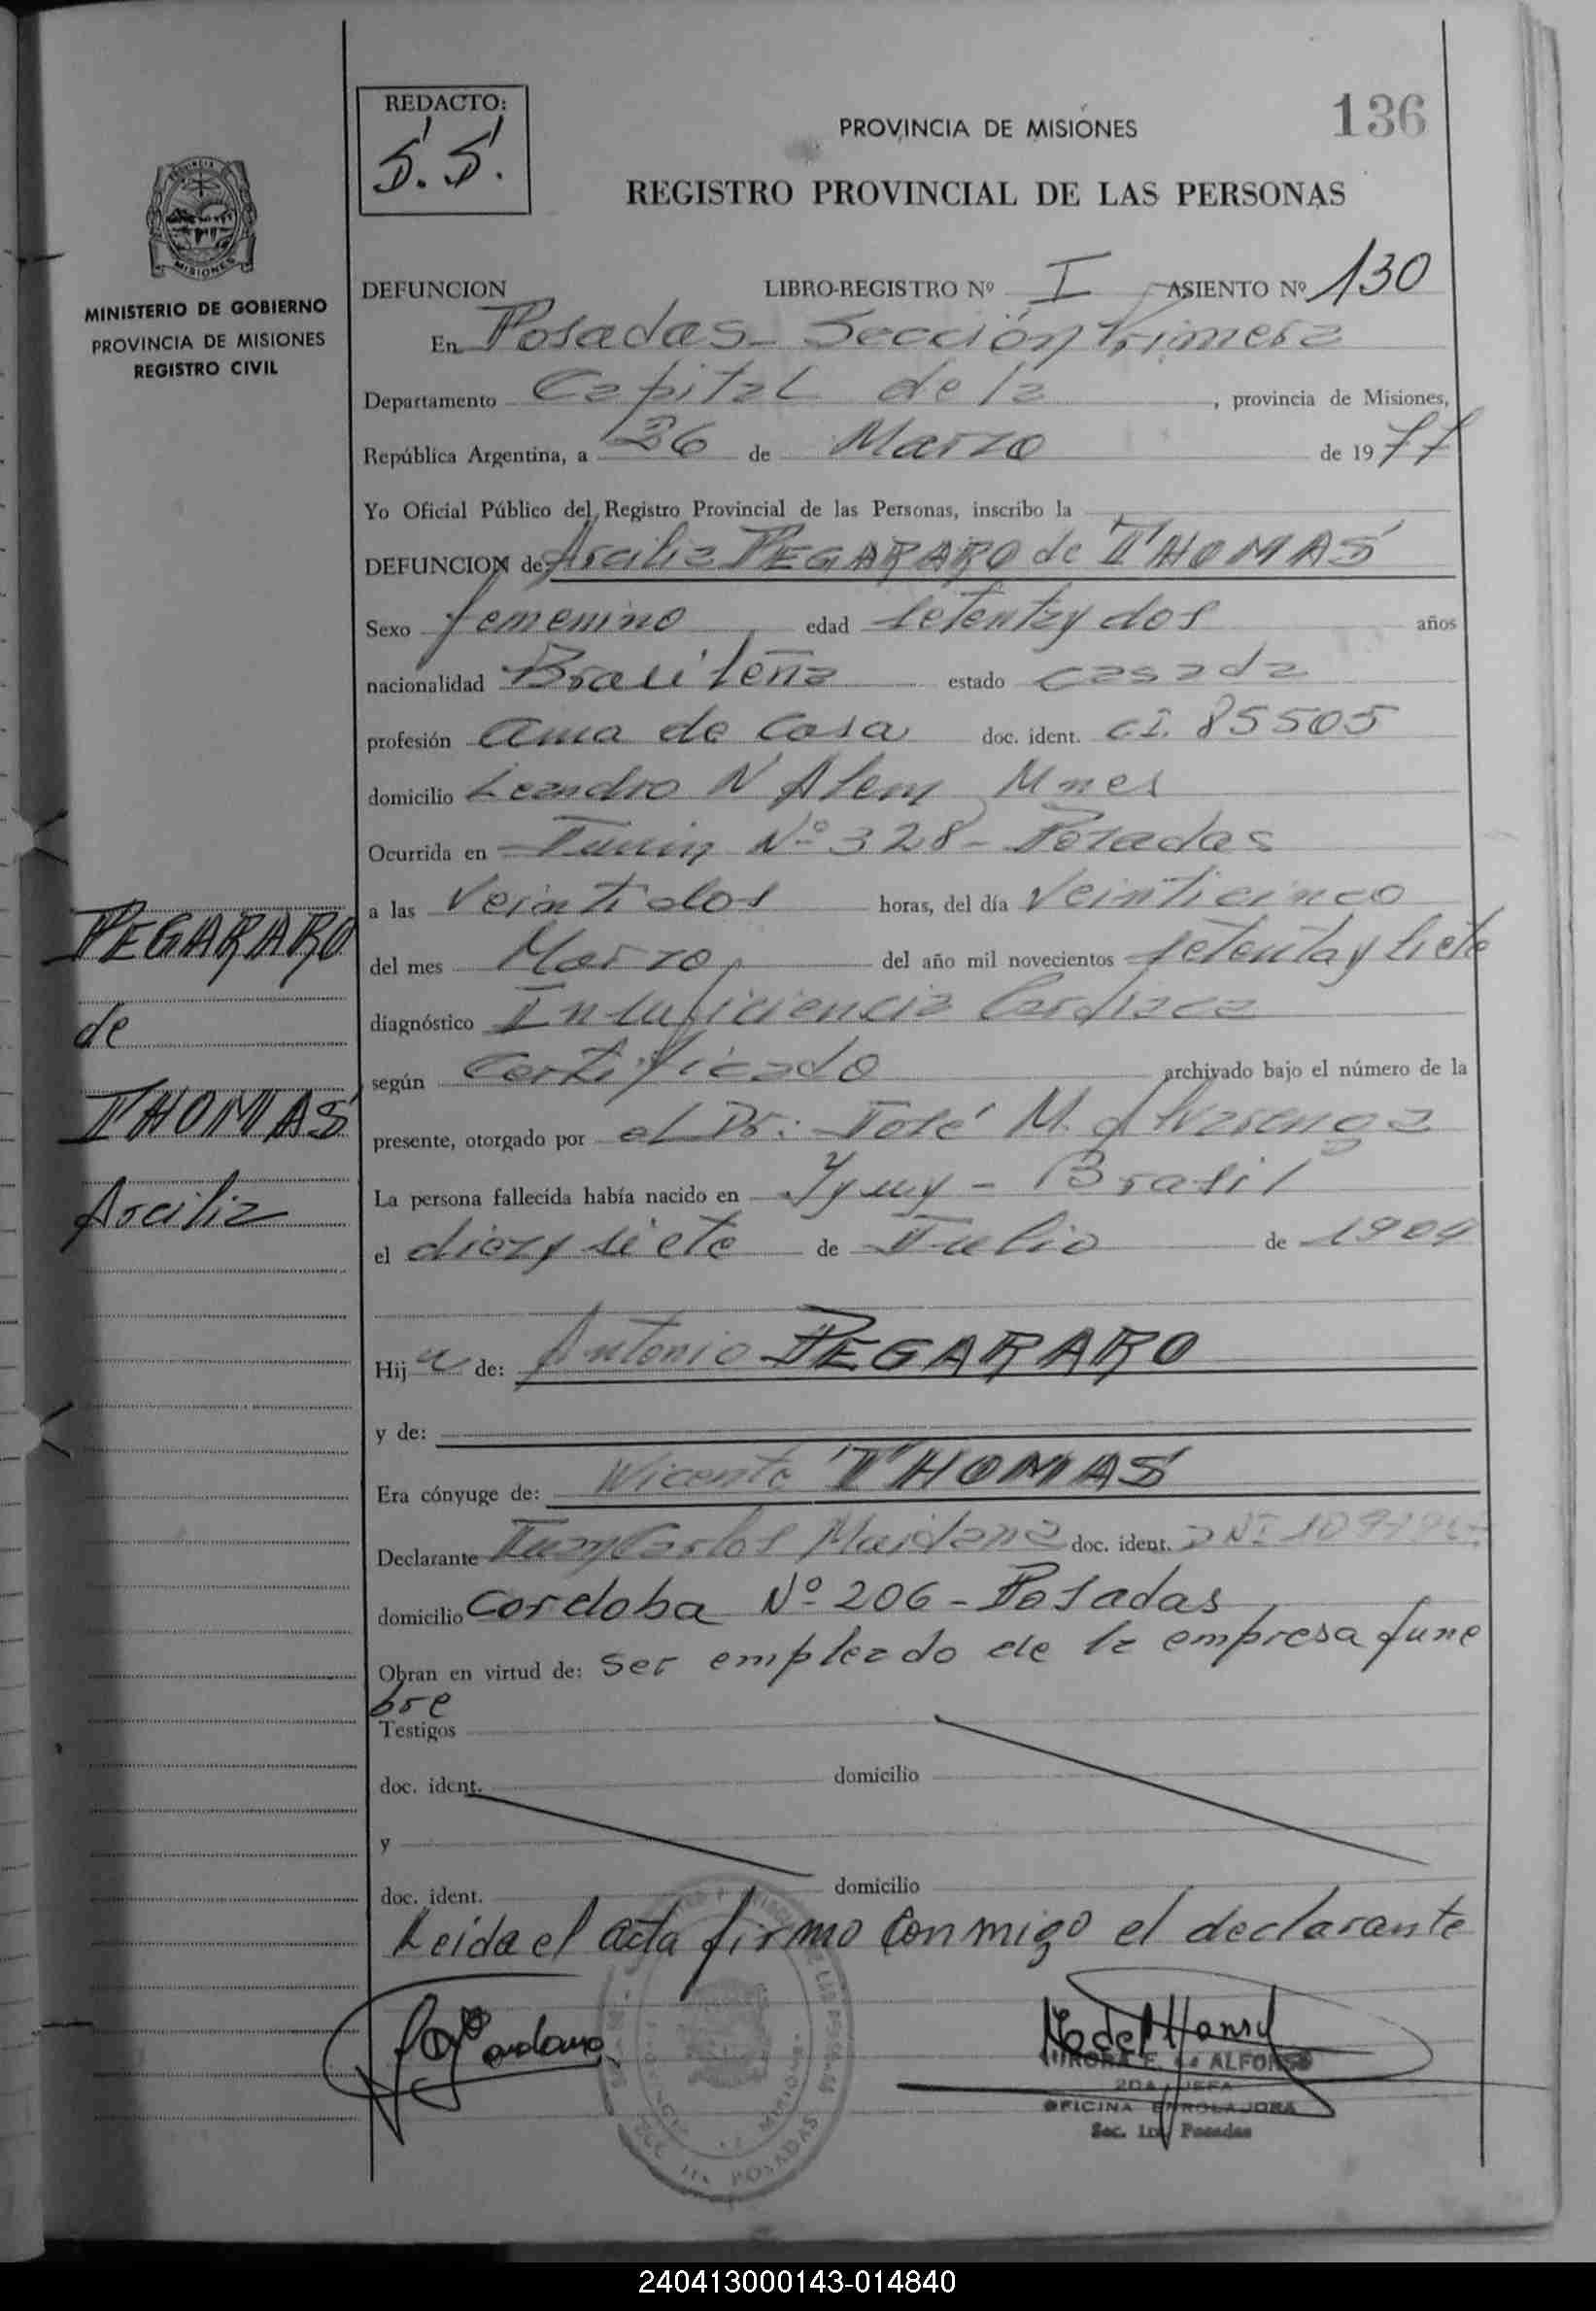 136
REDACTO:
S. S.
PROVINCIA DE MISIONES
REGISTRO PROVINCIAL DE LAS PERSONAS
PROVINCIA
MISIONES
MINISTERIO DE GOBIERNO
PROVINCIA DE MISIONES
REGISTRO CIVIL
DEFUNCION LIBRO-REGISTRO Nº I ASIENTO Nº 130
En Posadas - Sección Primera
Departamento Capital de la , provincia de Misiones,
República Argentina, a 26 de Marzo de 1977
Yo Oficial Público del Registro Provincial de las Personas, inscribo la
DEFUNCION de: Arcilia PEGARARO de THOMAS
Sexo femenino edad setentay dos años
nacionalidad Brasileña estado casada
profesión ama de casa doc. ident. C.I. 85505
domicilio Leandro N Alem Mnes
Ocurrida en Junin Nº 328 - Posadas
a las Veintidos horas, del día Veinticinco
del mes Marzo del año mil novecientos setenta y siete
diagnóstico Insuficiencia Cardiaca
según Certificado archivado bajo el número de la
presente, otorgado por el Dr: José M. Alvarenga
La persona fallecida había nacido en - Brasil
el diez y siete de Julio de 1904
Hija de: Antonio PEGARARO
y de:
Era cónyuge de: Vicente THOMAS
Declarante Juan Carlos Maidana doc. ident. DNI
domicilio Cordoba Nº 206 - Posadas
Obran en virtud de: ser empleado de la empresa fune
bre
Testigos
doc. ident. domicilio
y
doc. ident. domicilio
Leida el acta firmo conmigo el declarante
PEGARARO
de
THOMAS
Arcilia
AURORA E. de ALFONSO
2DA JEFA
OFICINA ENROLADORA
Sec. 1ra Posadas
POSADAS
240413000143-014840